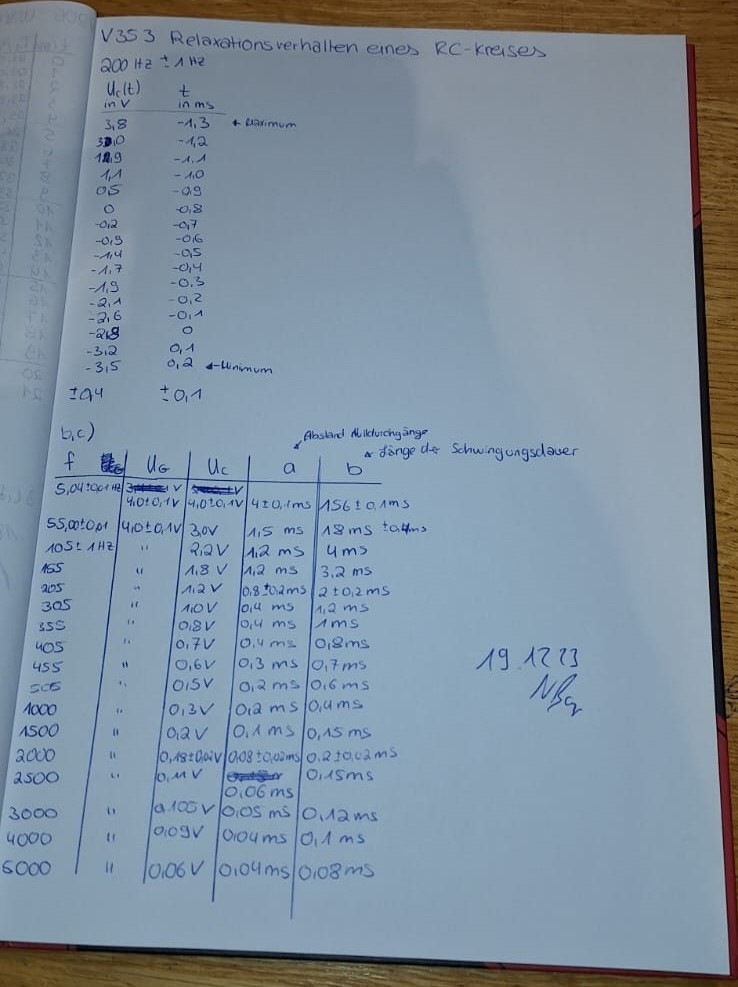 V353 Relaxationsverhalten eines RC-Kreises
200 Hz ± 1 Hz
Uc(t) t
in V in ms
3,8 -1,3 ← Maximum
3,0 -1,2
1,9 -1,1
1,1 -1,0
0,5 -0,9
0 -0,8
-0,2 -0,7
-0,9 -0,6
-1,4 -0,5
-1,7 -0,4
-1,9 -0,3
-2,1 -0,2
-2,6 -0,1
-2,8 0
-3,2 0,1
-3,5 0,2 ← Minimum
±0,4 ±0,1
b,c)
Abstand Nulldurchgänge
Länge der Schwingungsdauer
f UG UC a b
5,04±0,01Hz 4,0±0,1V 4,0±0,1V 4±0,1ms 156±0,1ms
55,00±0,01 4,0±0,1V 3,0V 1,5 ms 18ms ±0,4ms
105±1Hz " 2,2V 1,2 ms 4ms
155 " 1,8V 1,2 ms 3,2 ms
205 " 1,2V 0,8±0,2ms 2±0,2ms
305 " 1,0V 0,4 ms 1,2 ms
355 " 0,8V 0,4 ms 1ms
405 " 0,7V 0,4 ms 0,8ms
455 " 0,6V 0,3 ms 0,7ms
505 " 0,5V 0,2 ms 0,6 ms
1000 " 0,3V 0,2 ms 0,4ms
1500 " 0,2V 0,1 ms 0,15ms
2000 " 0,18±0,02V 0,08±0,02ms 0,2±0,02ms
2500 " 0,11V 0,06ms 0,15ms
3000 " 0,105V 0,05ms 0,12ms
4000 " 0,09V 0,04ms 0,1ms
6000 " 0,06V 0,04ms 0,08ms
19.12.23